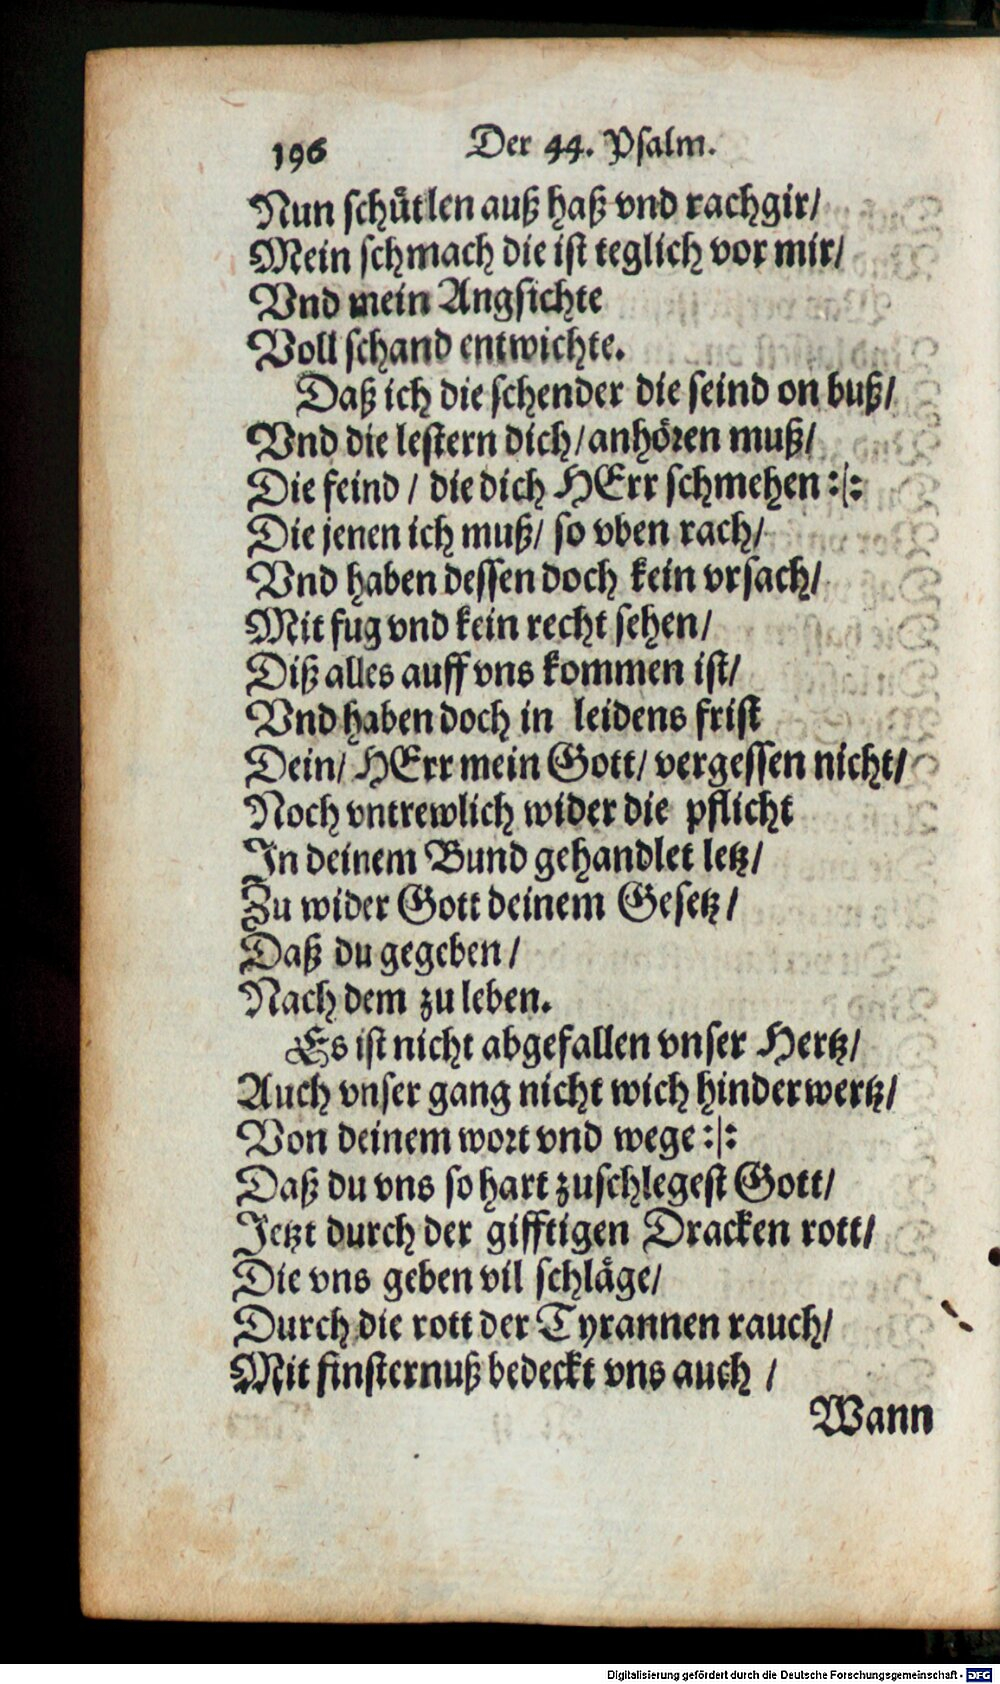 196 Der 44. Psalm.
Nun schuͤtlen auß haß vnd rachgir/
Mein schmach die ist teglich vor mir/
Vnd mein Angsichte
Voll schand entwichte.
Daß ich die schender die seind on buß/
Vnd die lestern dich/ anhoͤren muß/
Die feind / die dich HErr schmehen :/:
Die jenen ich muß/ so vben rach/
Vnd haben dessen doch kein vrsach/
Mit fug vnd kein recht sehen/
Diß alles auff vns kommen ist/
Vnd haben doch in leidens frist
Dein/ HErr mein Gott/ vergessen nicht/
Noch vntrewlich wider die pflicht
In deinem Bund gehandlet letz/
Zu wider Gott deinem Gesetz/
Daß du gegeben/
Nach dem zu leben.
Es ist nicht abgefallen vnser Hertz/
Auch vnser gang nicht wich hinderwertz/
Von deinem wort vnd wege :/:
Daß du vns so hart zuschlegest Gott/
Jetzt durch der gifftigen Dracken rott/
Die vns geben vil schlaͤge/
Durch die rott der Tyrannen rauch/
Mit finsternuß bedeckt vns auch /
Wann
Digitalisierung gefördert durch die Deutsche Forschungsgemeinschaft - DFG